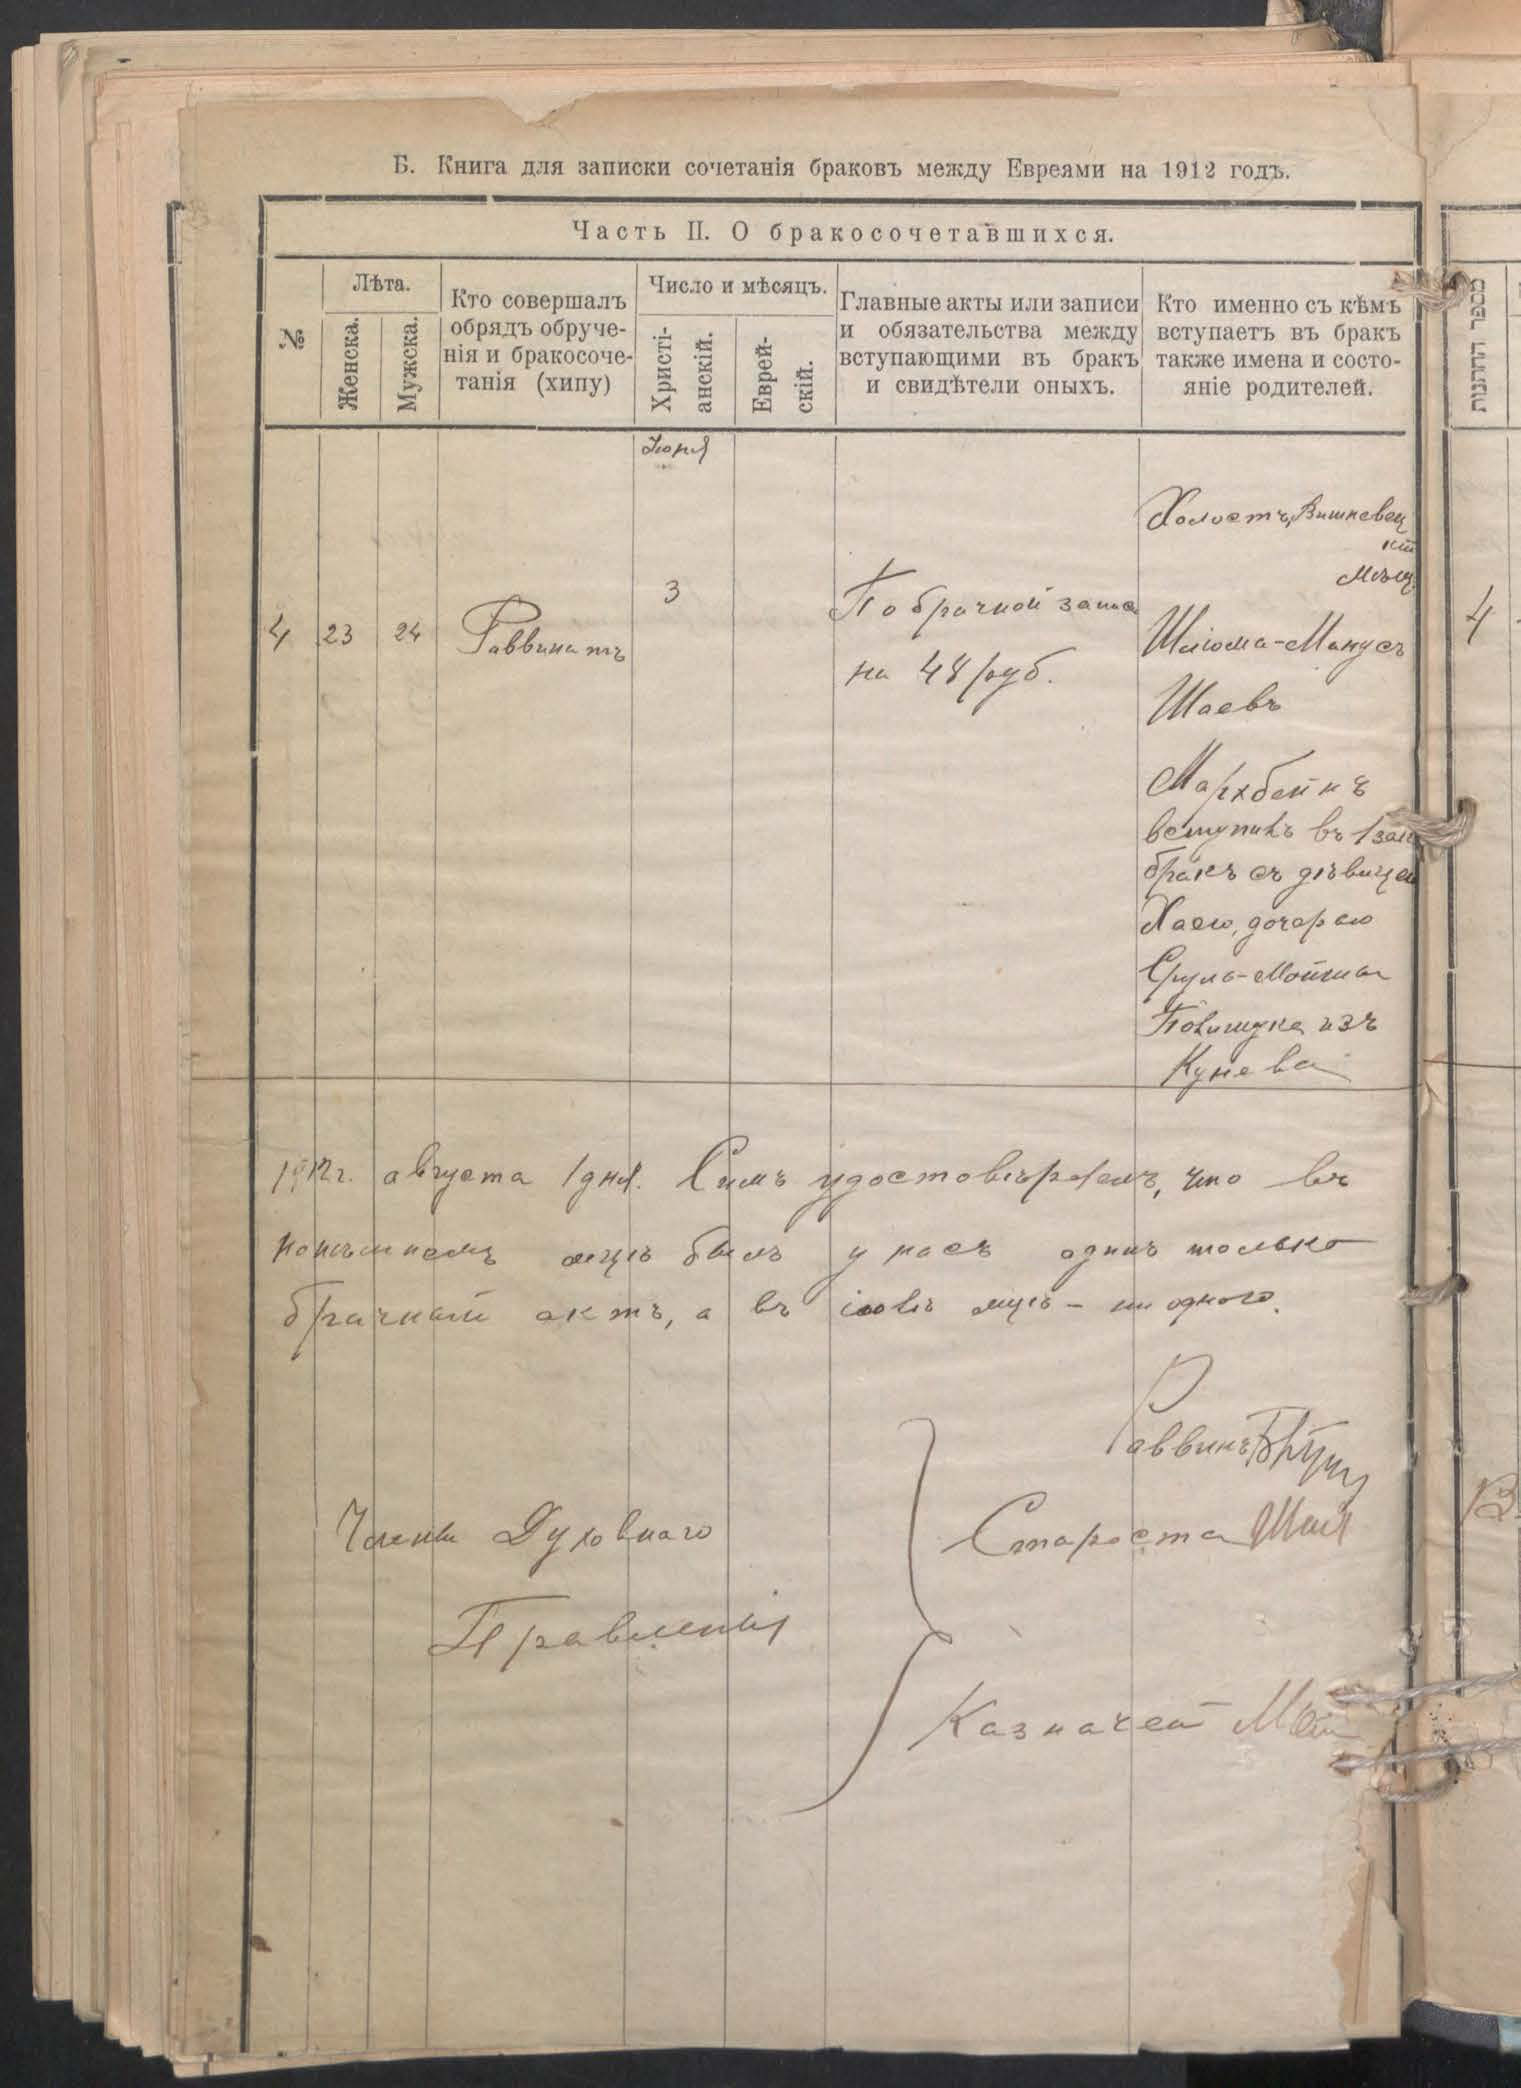 Б. Книга для записки сочетанія браковъ между Евреями на 1912 годъ.
Часть II. О бракосочетавшихся.
№
Лѣта.
Женска.
Мужска.
Кто совершалъ
обрядъ обруче-
нія и бракосоче-
танія (хипу)
Число и мѣсяцъ.
Христі-
анскій.
Еврей-
скій.
Главные акты или записи
и обязательства между
вступающими въ бракъ
и свидѣтели оныхъ.
Кто именно съ кѣмъ
вступаетъ въ бракъ
также имена и состо-
яніе родителей.
Іюня
4
23
24
Раввинатъ
3
По брачной записи
на 48 руб.
Холостъ, Вишневец
кій
Мѣщ.
Шлiома-Манусъ
Шаевъ
Мархбейнъ
вступилъ въ 1 зак
бракъ съ дѣвицею
Хаею, дочерью
Сруль-Мойши
Полищука изъ
Кунева
1912 г. августа 1 дня. Симъ удостовѣряемъ, что въ
мцѣ былъ у насъ одинъ только
брачный актъ, а въ іюлѣ мцѣ - ни одного.
Раввинъ
Члены Духовнаго
Правленія
Староста
Казначей
מספר החתונות
4